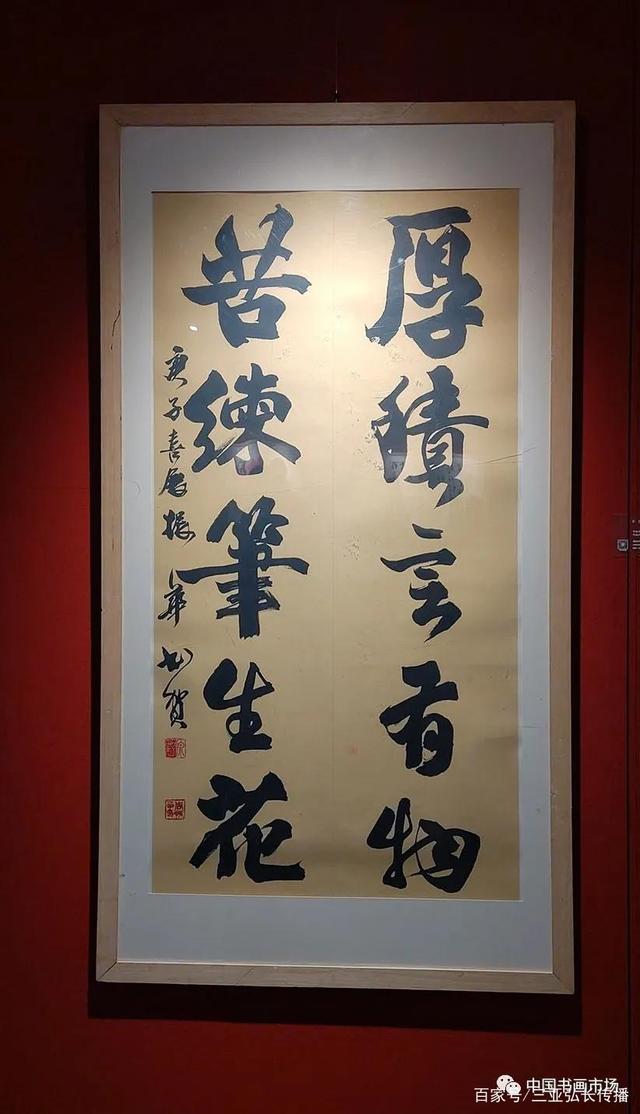 厚積言有物
苦練筆生花
庚子喜居振華书賀
中国书画市场
百家号/三亚弘长传播